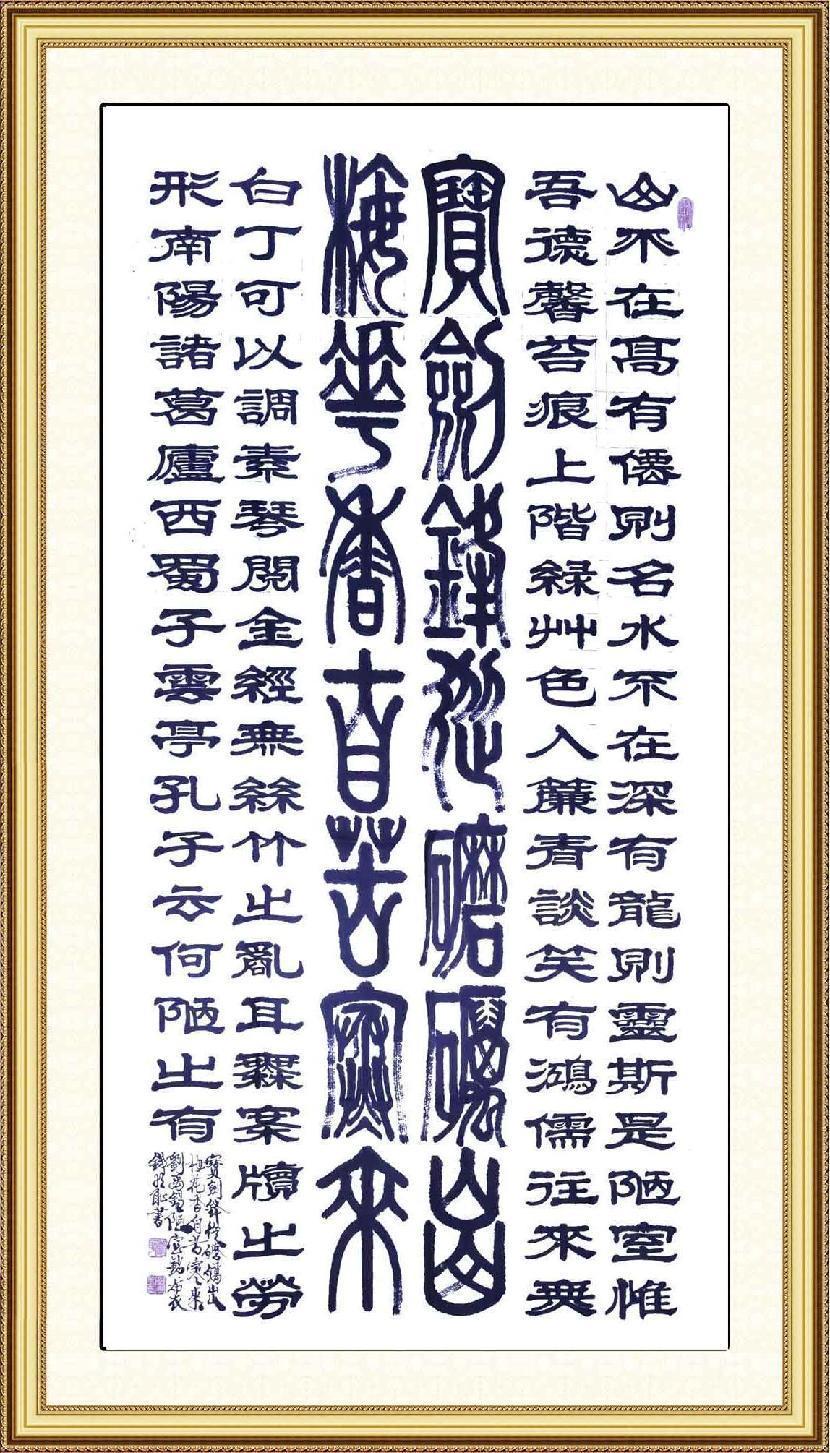 山不在高有僊則名水不在深有龍則靈斯是陋室惟
吾德馨苔痕上階緑艸色入簾青談笑有鴻儒往來無
寶劍鋒從磨礪出
梅華香自苦寒來
白丁可以調素琴閱金經無絲竹之亂耳無案牘之勞
形南陽諸葛廬西蜀子雲亭孔子云何陋之有
寶劍鋒從磨礪出
梅花香自苦寒來
劉禹錫陋室銘
書